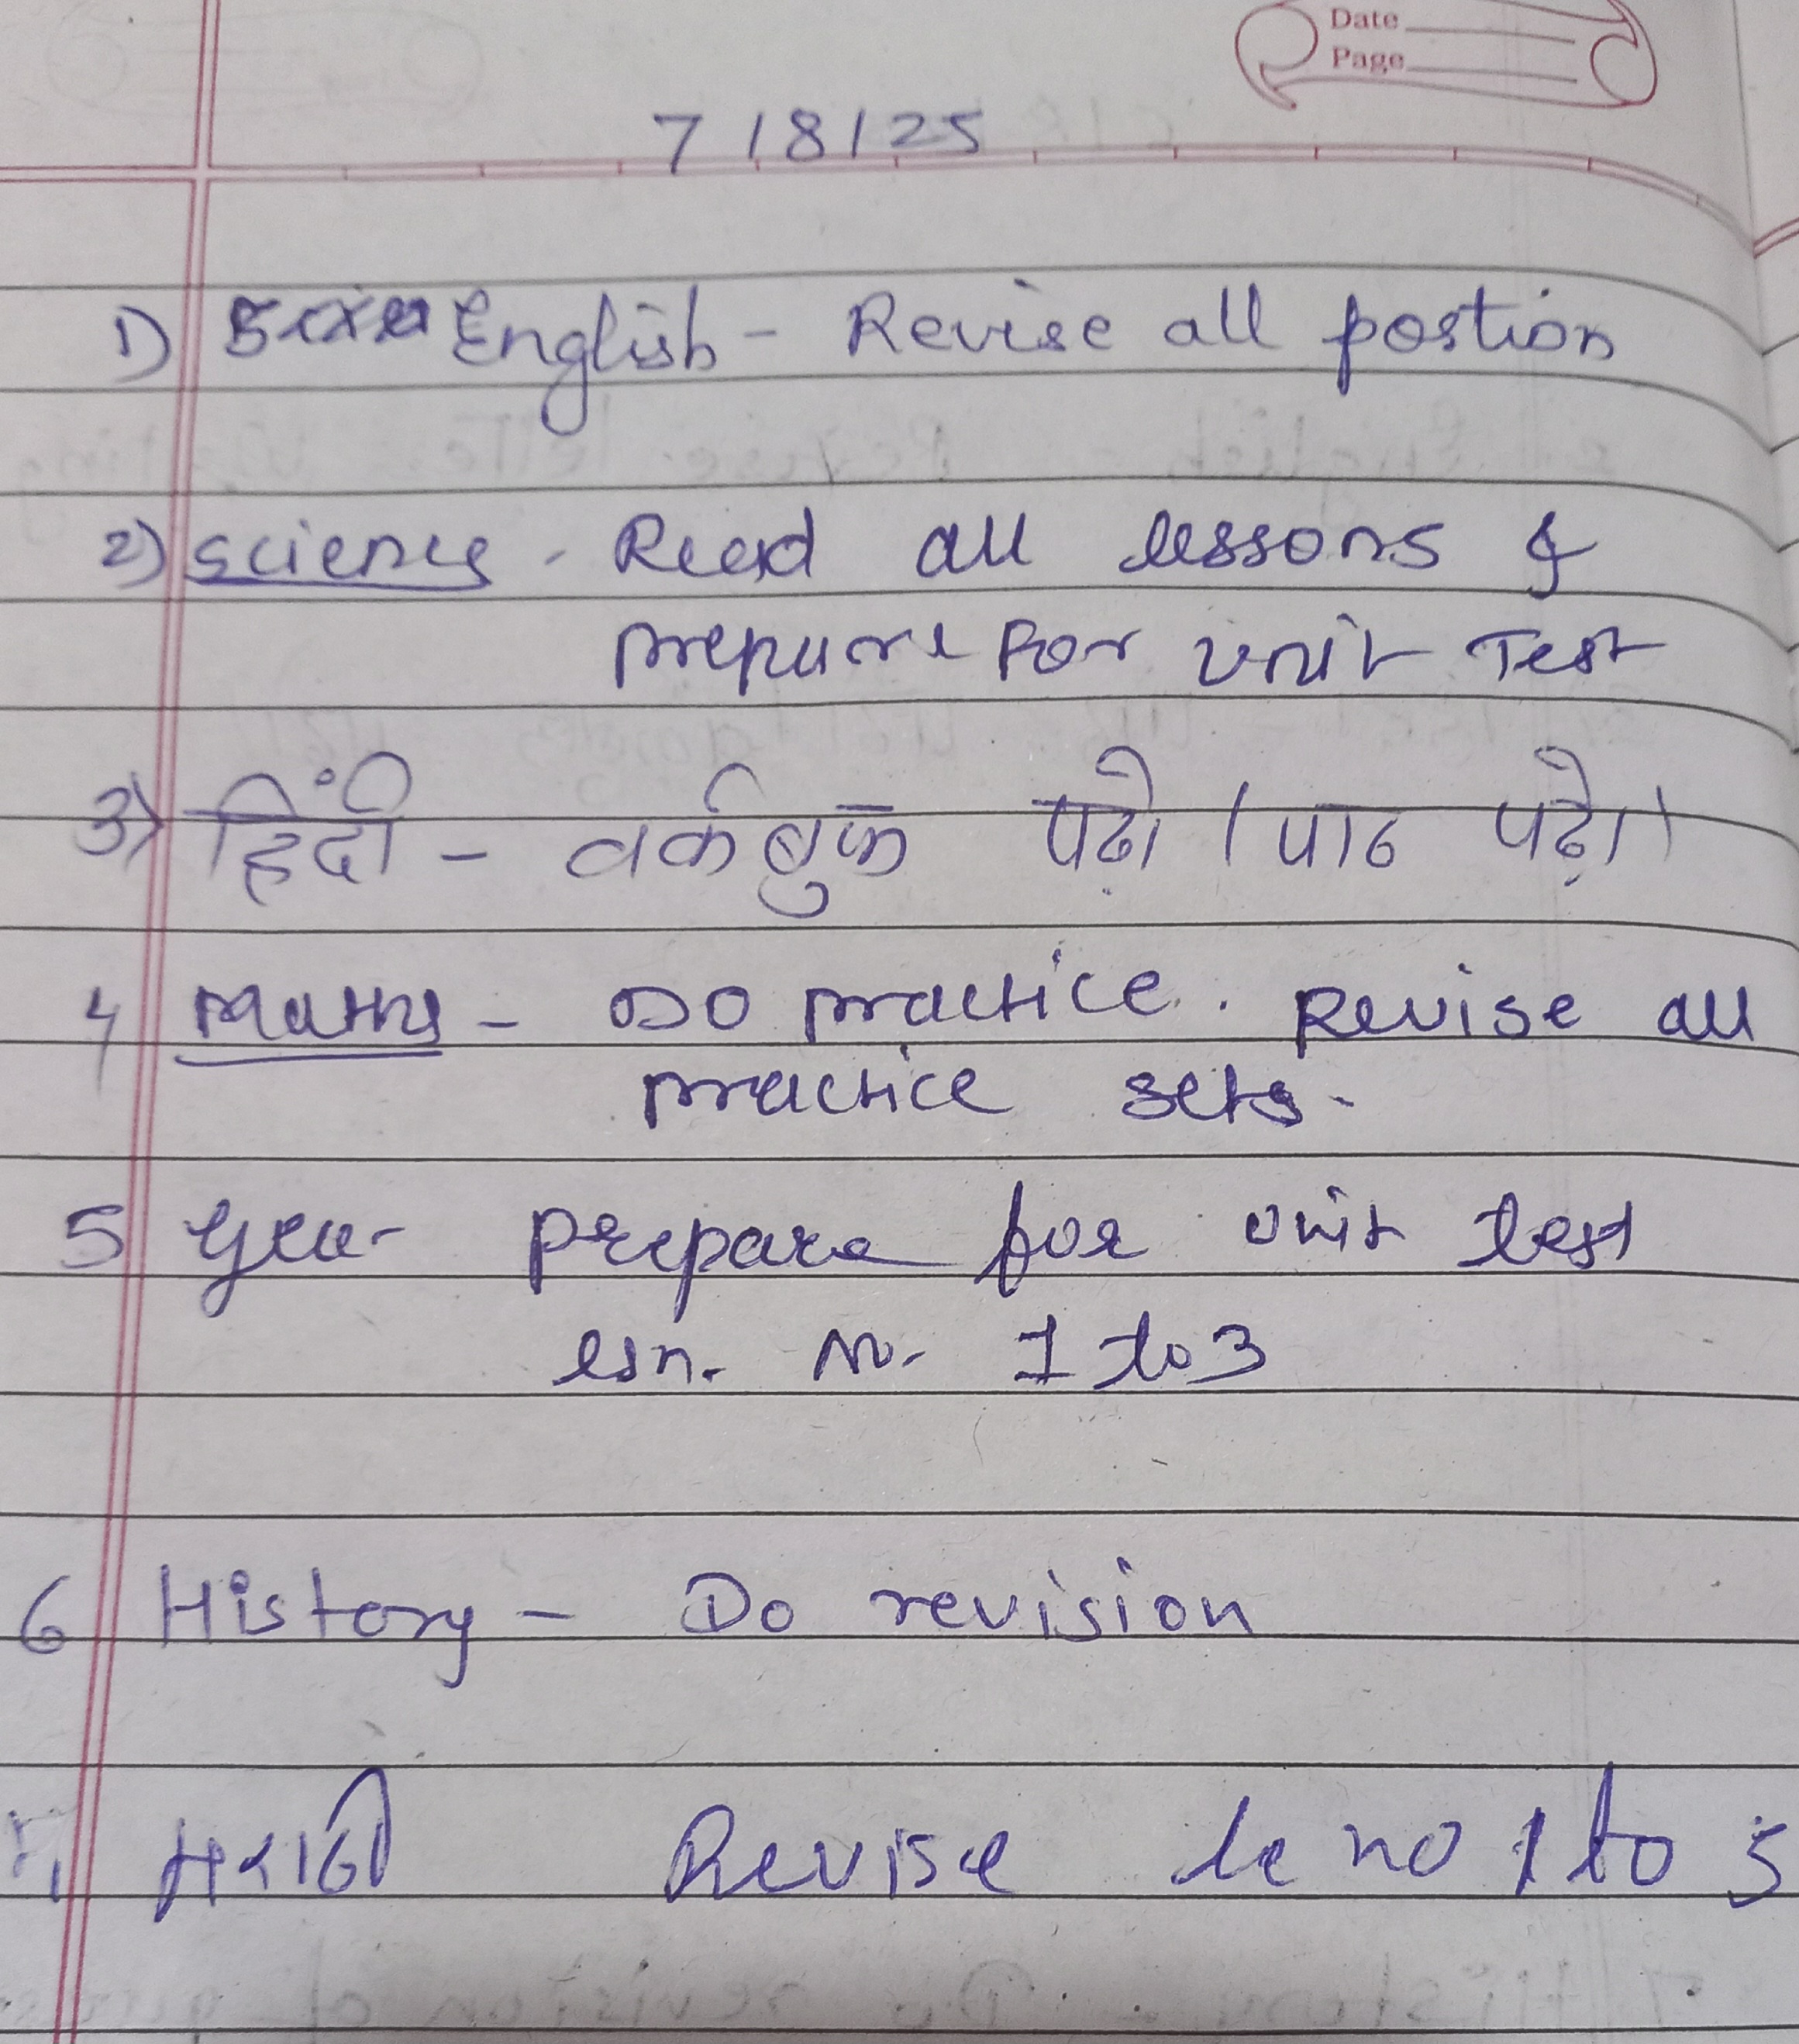 Date
Page
7/8/25
1) English - Revise all portion
2) Science - Read all lessons &
prepare for unit Test
3) हिंदी - वर्कबुक पढ़ो। पाठ पढ़ो।
4 Maths - Do practice. Revise all
practice sets.
5 Geo- Prepare for unit test
lsn. no. 1 to 3
6 History - Do revision
मराठी Revise le no 1 to 5